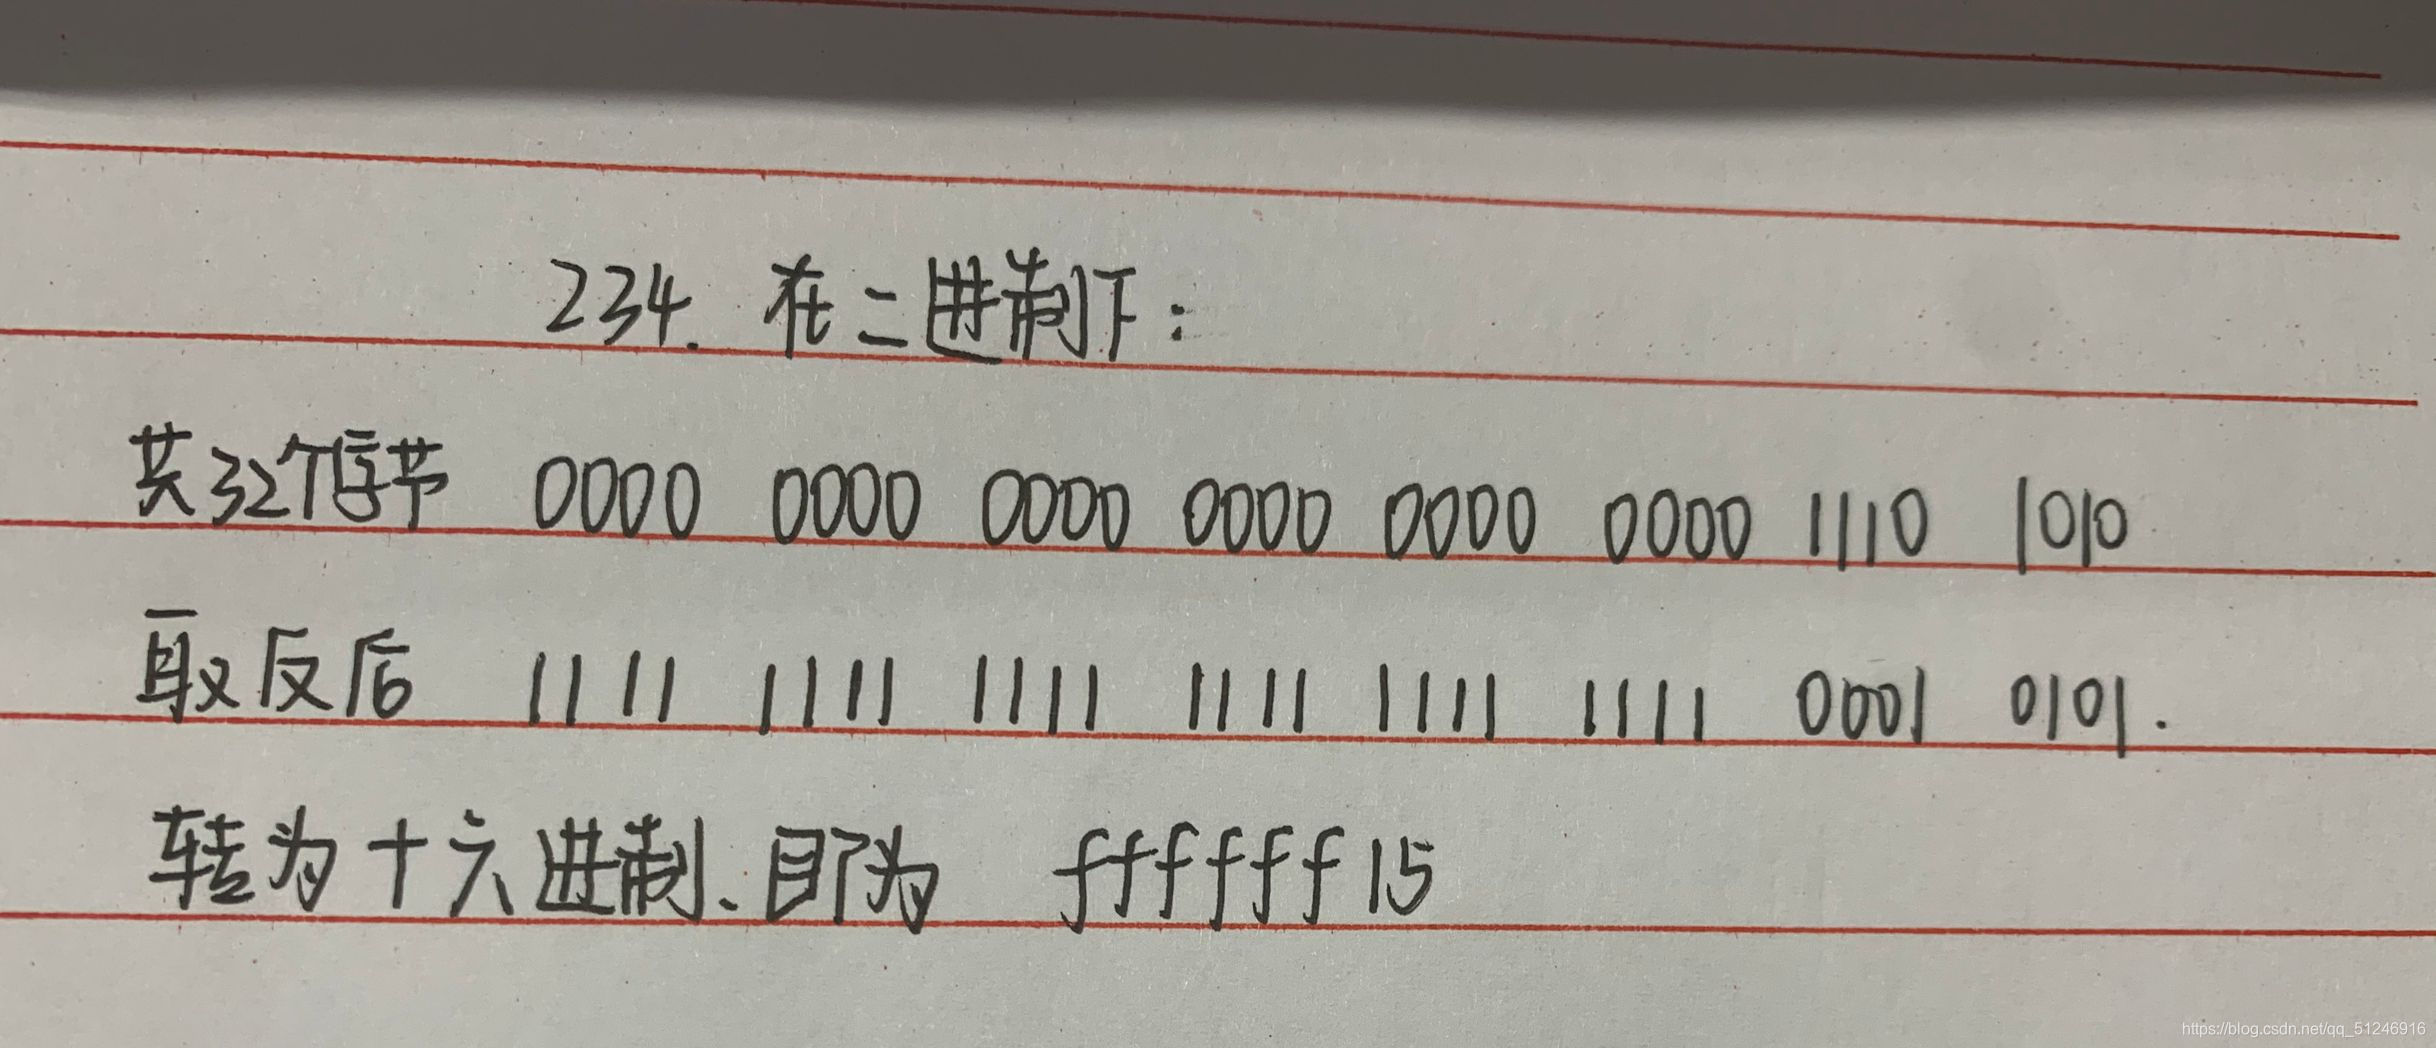 234. 在二进制下:
共32个字节 0000 0000 0000 0000 0000 0000 1110 1010
取反后 1111 1111 1111 1111 1111 1111 0001 0101.
转为十六进制、即为 ffffff15
https://blog.csdn.net/qq_51246916